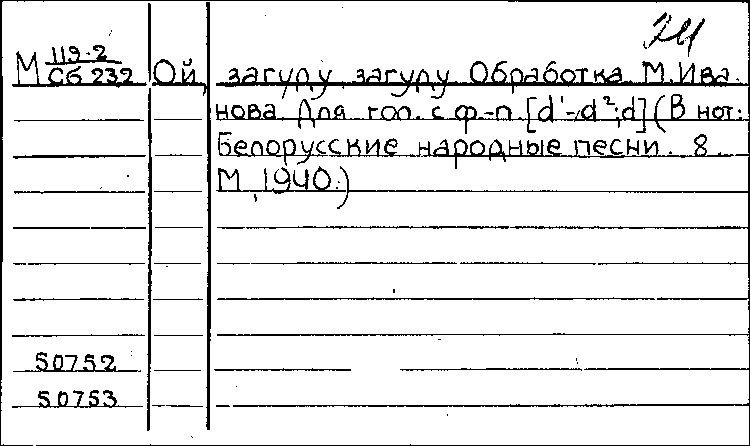 М 119-2
Сб 232
Ой, загуду, загуду. Обработка М. Ива
нова. Для гол. с ф.-п. [d¹-d²; d] (В нот:
Белорусские народные песни. 8.
М., 1940.)
50752
50753